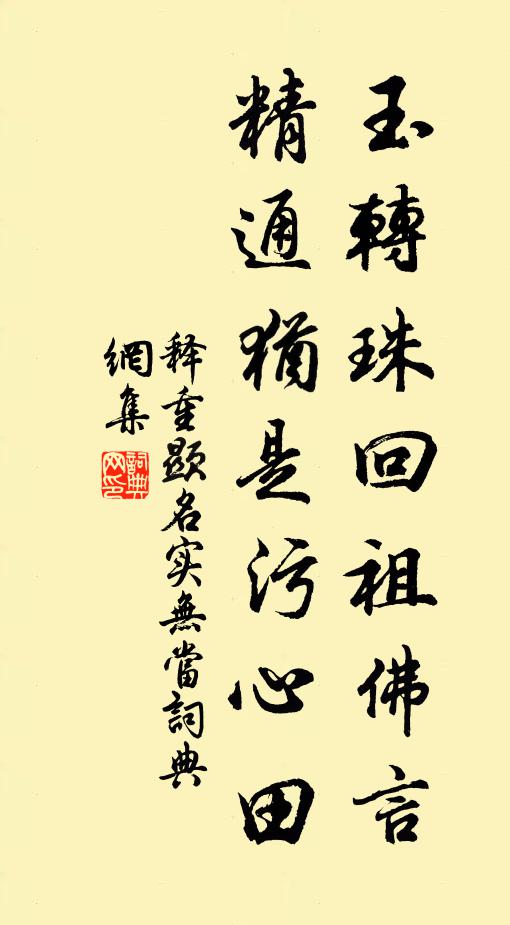 玉轉珠回祖佛言
精通猶是污心田
释重顯名实無當詞典
網集
詞典網印